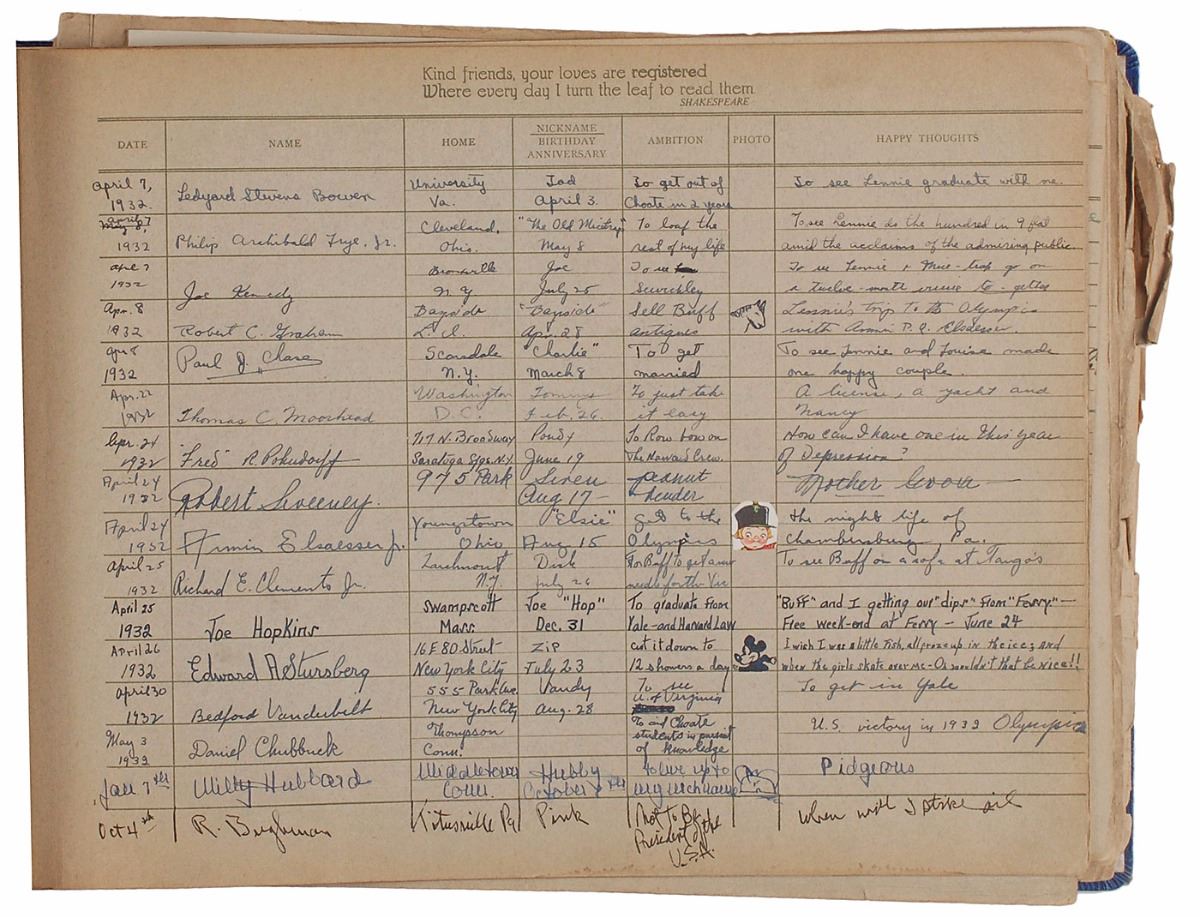 Kind friends, your loves are registered
Where every day I turn the leaf to read them
SHAKESPEARE
DATE NAME HOME NICKNAME BIRTHDAY ANNIVERSARY AMBITION PHOTO HAPPY THOUGHTS
April 7, University Tad To get out of To see Lennie graduate with me.
1932. Ledyard Stevens Bowen Va. April 3. Choate in 2 years
April 7 May 8, Cleveland, "The Old To loaf the To see Lennie do the hundred in 9 flat
1932 Philip Archibald Frye, Jr. Ohio. May 8 rest of my life amid the acclaims of the admiring public
Apr 7 Bronxville Joe To see To see Lennie + go on
1932 Joe Kennedy N.Y. July 25 Sewickley a twelve-month to-gether
Apr. 8 Bayside "Bayside" Sell Buff Lennie's trip to the Olympics
1932 Robert C. Graham L.I. Apr. 28 antiques with Armin P.A. Elsaesser.
Apr 8 Paul J. Chase Scarsdale "Charlie" To get To see Lennie and Louise made
1932 N.Y. March 8 married one happy couple.
Apr. 22 Washington Tommy To just take A license, a yacht and
1932 Thomas C. Moorhead D.C. Feb. 26. it easy Nancy
Apr. 24 717 N. Broadway Pondy To Row bow on How can I have one in this year
1932 "Fred" R. Spgs. N.Y. June 19 The Harvard Crew. of Depression?
April 24 975 Park Siren peanut Mother
1932 Robert Sweeney. Aug 17-
April 24 Youngstown "Elsie" get to the the night life of
1932 Armin Elsaesser Jr. Ohio Aug 15 Olympics Chambersburg Pa.
April 25 Larchmont Dick For Buff to get a new To see Buff on a sofa at Tango's
1932 Richard E. Clements Jr. N.Y. July 26 for the
April 25 Swampscott Joe "Hop" To graduate from "Buff" and I getting our "dips" from "Ferry."-
1932 Joe Hopkins Mass. Dec. 31 Yale-and Harvard Law Free week-end at Ferry - June 24
April 26 16 E 80 Street Zip cut it down to I wish I was a little fish, all froze up in the ice; and
1932 Edward A Stursberg New York City July 23 12 showers a day when the girls skate over me-O wouldn't that be nice!!
April 30 555 Park Ave Vandy To see U. of Virginia To get in Yale
1932 Bedford Vanderbilt New York City Aug. 28
May 3 Thompson To aid Choate students in pursuit of knowledge U.S. victory in 1932 Olympics
1932 Daniel Chubbuck Conn.
Jan 7th Hubbard Middletown Hubby to live up to Pidgeons
Conn. October my nickname
Oct 4th R. Pa Pink Not to be President of the U.S.A. When will I strike oil